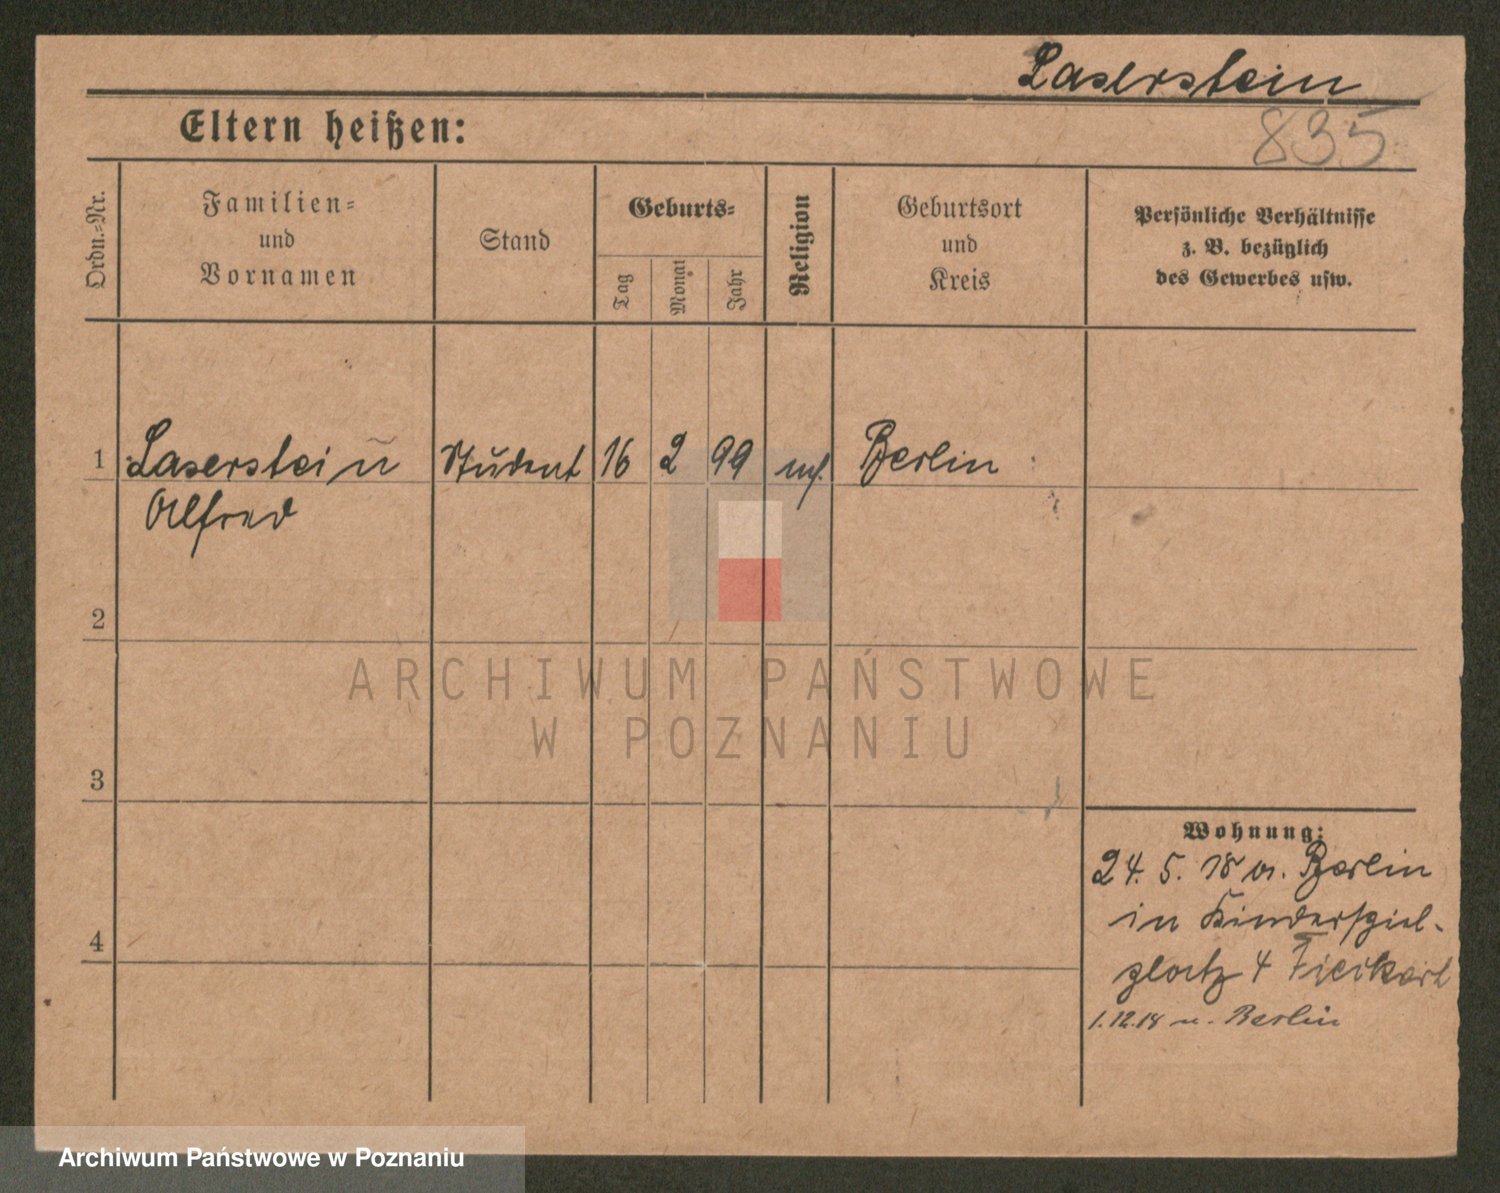 Laserstein
835
Eltern heißen:
Ordn.-Nr.
Familien-
und
Vornamen
Stand
Geburts-
Tag
Monat
Jahr
Religion
Geburtsort
und
Kreis
Persönliche Verhältnisse
z. B. bezüglich
des Gewerbes usw.
1 Laserstein Student 16 2 99 Berlin
Alfred
2
3
4
Wohnung:
24. 5. 18 v. Berlin
in Kinderspiel-
platz 4
1.12.18 n. Berlin
ARCHIWUM PAŃSTWOWE
W POZNANIU
Archiwum Państwowe w Poznaniu